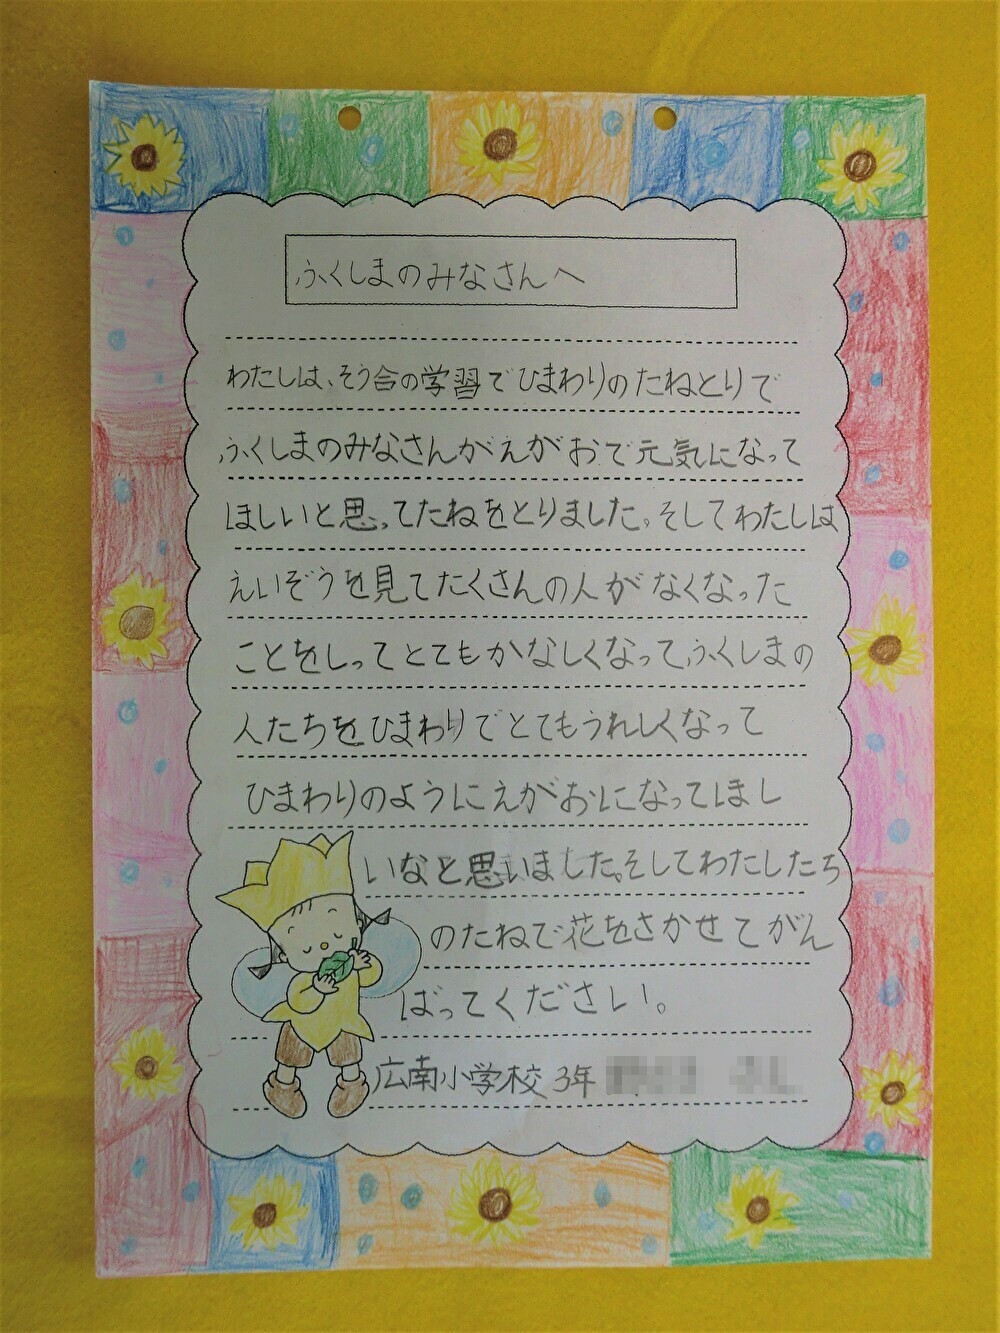 ふくしまのみなさんへ
わたしは、そう合の学習でひまわりのたねとりで
ふくしまのみなさんがえがおで元気になって
ほしいと思ってたねをとりました。そしてわたしは
えいぞうを見てたくさんの人がなくなった
ことをしってとてもかなしくなって、ふくしまの
人たちをひまわりでとてもうれしくなって
ひまわりのようにえがおになってほし
いなと思いました。そしてわたしたち
のたねで花をさかせてがん
ばってください。
広南小学校3年